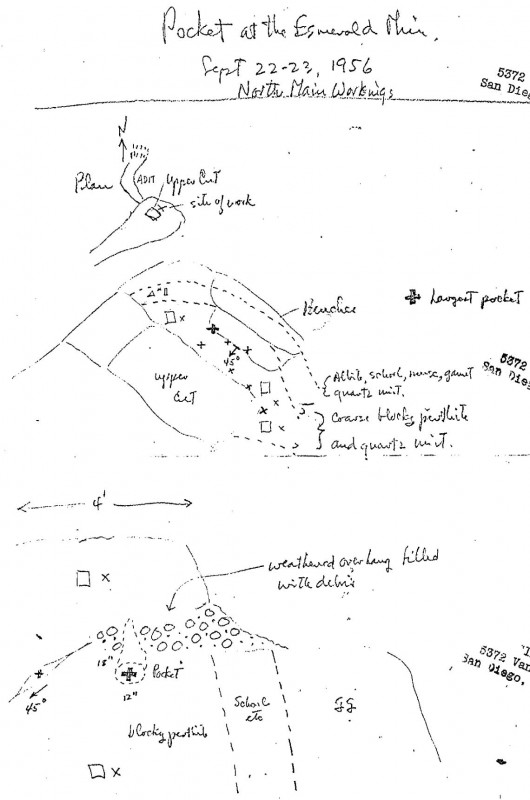 Pocket at the Esmerald Min.
Sept 22-23, 1956
North Main Workings
5372
San Dieg
N
Plan
ADIT
Upper Cut
site of work
Benches
Largest pocket
45°
upper
Cut
5372
San Dieg
Albite, schorl, musc, garnet
quartz mixt.
Coarse blocky perthite
and quartz mixt.
4'
weathered overhang filled
with debris
x
18"
Pocket
12"
45°
Schorl
etc
GG
5372 Van
San Diego,
blocky perthite
x